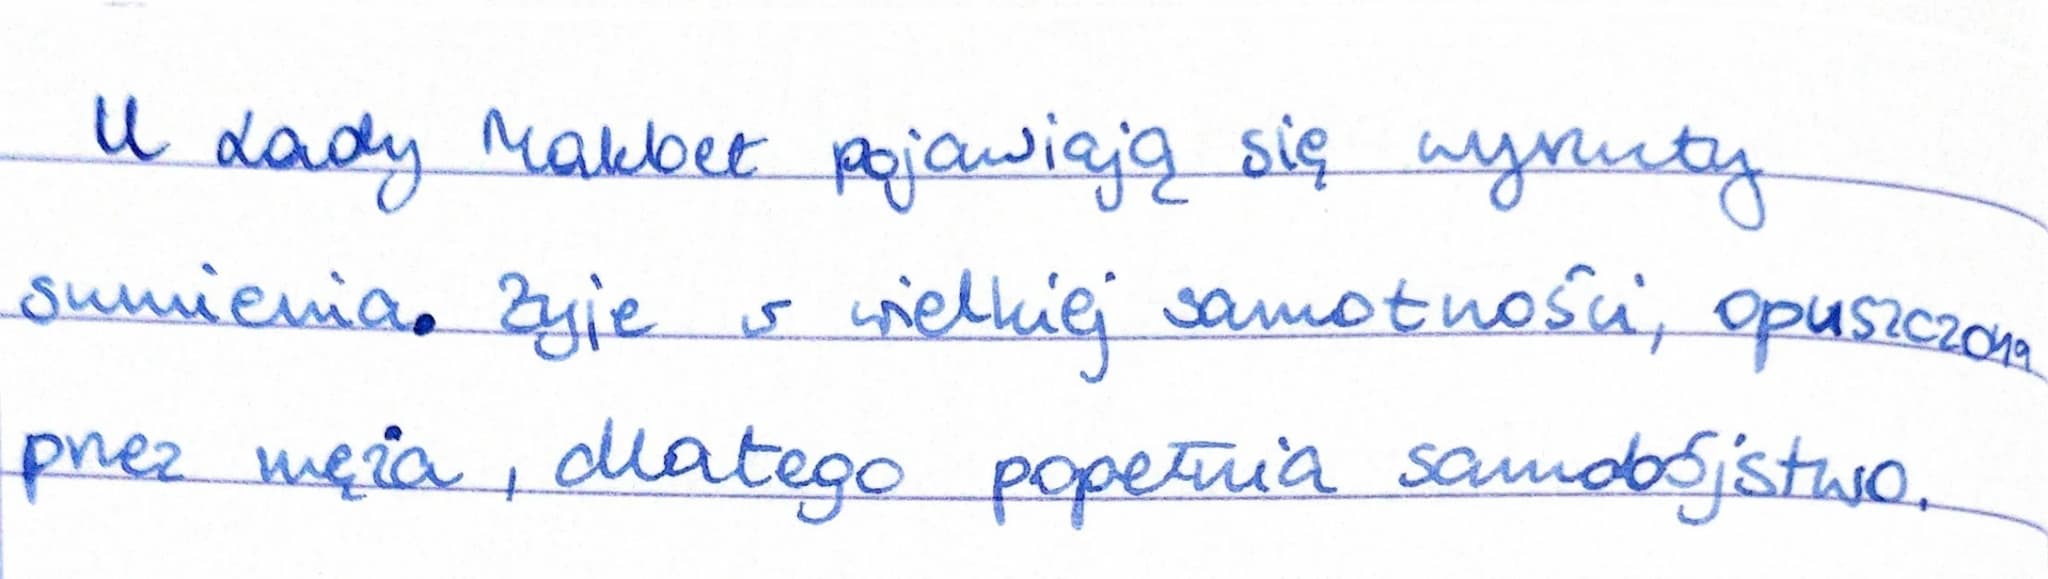 U Lady Makbet pojawiają się wyrzuty
sumienia. Żyje w wielkiej samotności, opuszczona
przez męża, dlatego popełnia samobójstwo.